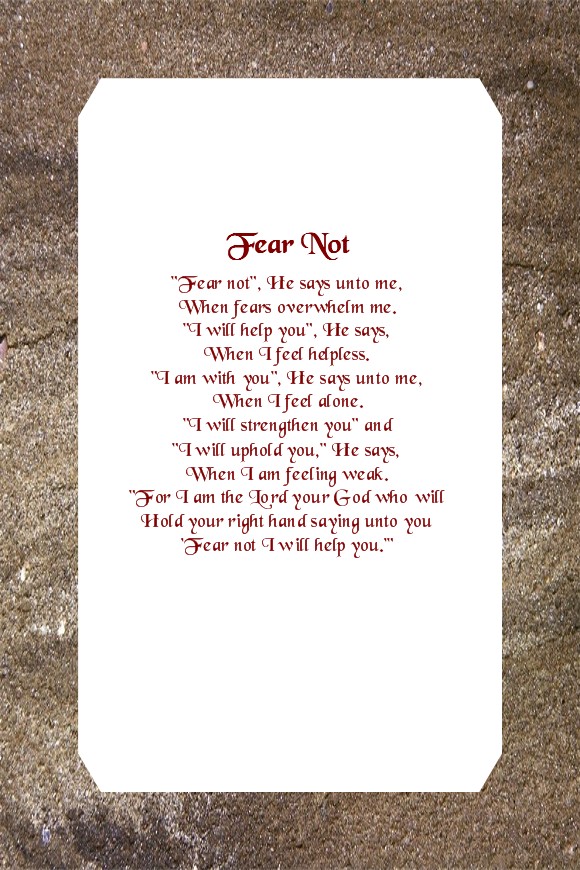 Fear Not
"Fear not", He says unto me,
When fears overwhelm me.
"I will help you", He says,
When I feel helpless.
"I am with you", He says unto me,
When I feel alone.
"I will strengthen you" and
"I will uphold you," He says,
When I am feeling weak.
"For I am the Lord your God who will
Hold your right hand saying unto you
'Fear not I will help you.'"